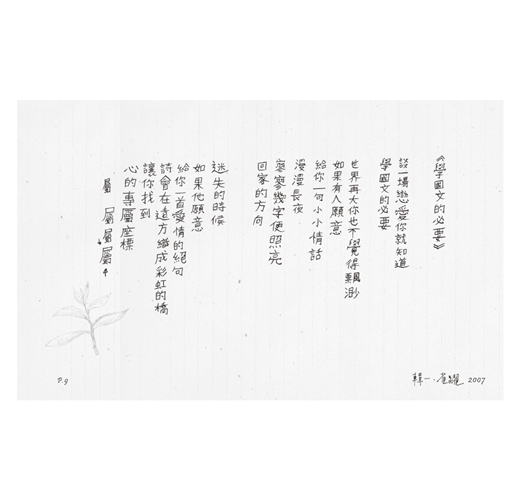 《學國文的必要》
談一場戀愛你就知道
學國文的必要
世界再大你也不覺得飄渺
如果有人願意
給你一句小小情話
漫漫長夜
寥寥幾字便照亮
回家的方向
迷失的時候
如果他願意
給你一首愛情的絕句
詩會在遠方繼成彩虹的橋
讓你找到
心的專屬座標
屬 屬屬屬
P.9
韓一.雀躍 2007